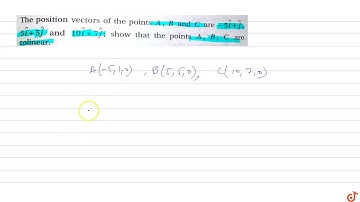 The position vectors of the points A, B and C are −5î+ĵ,
5î+5ĵ and 10î+7ĵ; show that the points A, B, C are
colinear.
A(-5,1,0) , B(5,5,0), C(10,7,0)